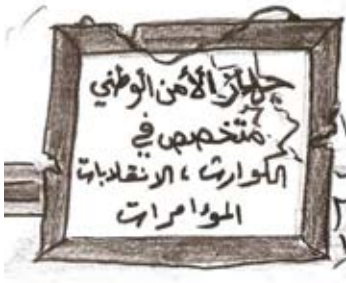 جهاز الأمن الوطني
متخصص في
الكوارث، الانقلابات
المؤامرات